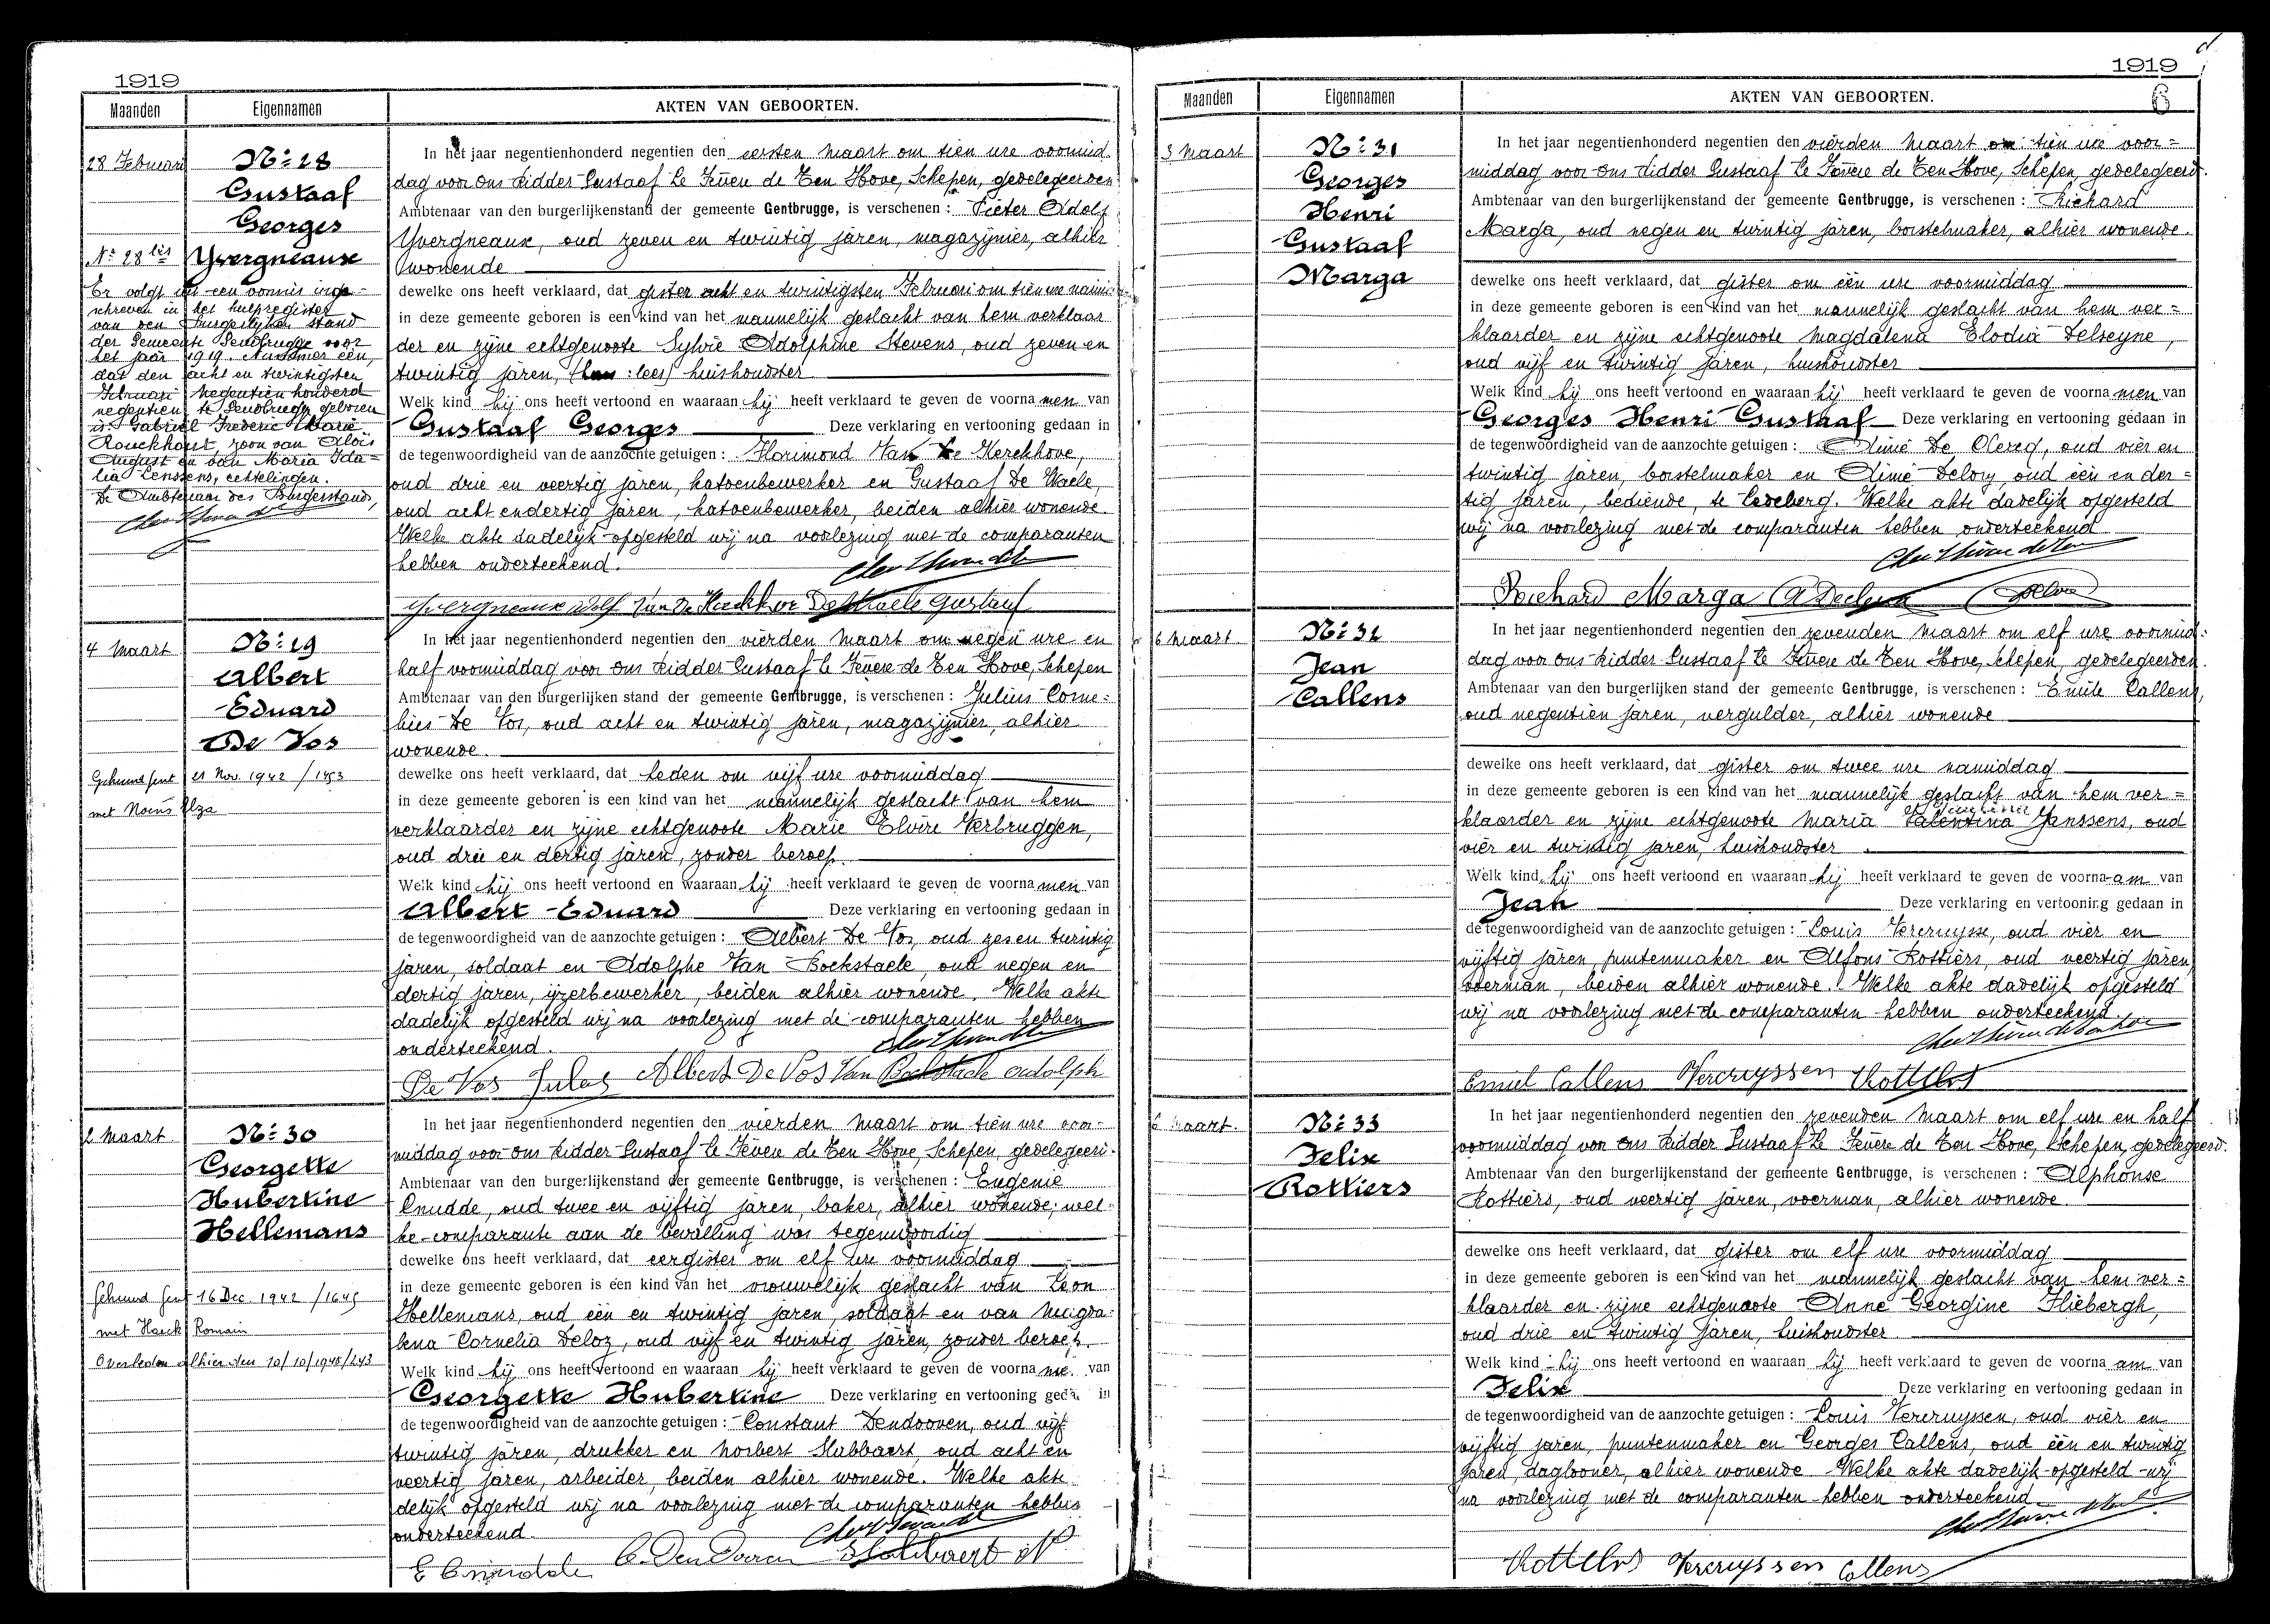 1919
Maanden Eigennamen AKTEN VAN GEBOORTEN.
28 Februari
Nº 28
Gustaaf
Georges
Yvergneaux
Nº 28 bis
Er volgt uit een vonnis inge-
schreven in het hulpregister
van den Burgerlijken stand
der Gemeente Gendbrugge voor
het jaar 1919. Nummer een,
dat den acht en twintigsten
Februari negentien honderd
negentien te Gendbrugge geboren
is Gabriël Frederic Marie
Rouckhout zoon van Aloïs
August en van Maria Ida-
lia Lenssens, echtelingen.
De Ambtenaar des Burgerstands,
In het jaar negentienhonderd negentien den eersten Maart om tien ure voormid
dag voor ons Ridder Gustaaf de Ten Hove, Schepen, gedelegeerden
Ambtenaar van den burgerlijkenstand der gemeente Gentbrugge, is verschenen : Pieter Adolf
Yvergneaux, oud zeven en twintig jaren, magazijnier, alhier
wonende
dewelke ons heeft verklaard, dat gister acht en twintigsten Februari om tien ure namid
in deze gemeente geboren is een kind van het mannelijk geslacht van hem verklaar
der en zijne echtgenoote Sylvie Adolphine Stevens, oud zeven en
twintig jaren, ( : lees) huishoudster
Welk kind hij ons heeft vertoond en waaraan hij heeft verklaard te geven de voornamen van
Gustaaf Georges Deze verklaring en vertooning gedaan in
de tegenwoordigheid van de aanzochte getuigen : Florimond Van de Kerckhove,
oud drie en veertig jaren, katoenbewerker en Gustaaf De Waele,
oud acht endertig jaren, katoenbewerker, beiden alhier wonende.
Welke akte dadelijk opgesteld wij na voorlezing met de comparanten
hebben onderteekend.
Yvergneaux Adolf Van De Kerckhove De Waele Gustaaf
4 Maart
Nº 29
Albert
Eduard
De Vos
Gehuwd Gent 21 Nov. 1942 / 1453
met Noens Elza
In het jaar negentienhonderd negentien den vierden Maart om negen ure en
half voormiddag voor ons Ridder Gustaaf de Ten Hove, Schepen
Ambtenaar van den burgerlijken stand der gemeente Gentbrugge, is verschenen : Julius Corne-
lius De Vos, oud acht en twintig jaren, magazijnier, alhier
wonende.
dewelke ons heeft verklaard, dat heden om vijf ure voormiddag
in deze gemeente geboren is een kind van het mannelijk geslacht van hem
verklaarder en zijne echtgenoote Marie Elvire Verbruggen,
oud drie en dertig jaren, zonder beroep.
Welk kind hij ons heeft vertoond en waaraan hij heeft verklaard te geven de voornamen van
Albert Eduard Deze verklaring en vertooning gedaan in
de tegenwoordigheid van de aanzochte getuigen : Albert De Vos, oud zesen twintig
jaren, soldaat en Adolphe Van Bockstaele, oud negen en
dertig jaren, ijzerbewerker, beiden alhier wonende. Welke akte
dadelijk opgesteld wij na voorlezing met de comparanten hebben
onderteekend.
De Vos Jules Albert De Vos Van Bockstaele Adolph
2 Maart
Nº 30
Georgette
Hubertine
Hellemans
Gehuwd Gent 16 Dec. 1942 / 1645
met Haeck Romain
Overleden alhier den 10/10/1948/243
In het jaar negentienhonderd negentien den vierden Maart om tien ure voor-
middag voor ons Ridder Gustaaf de Ten Hove, Schepen, gedelegeerd.
Ambtenaar van den burgerlijkenstand der gemeente Gentbrugge, is verschenen : Eugenie
Cnudde, oud twee en vijftig jaren, baker, alhier wonende; wel-
ke comparante aan de bevalling was tegenwoordig
dewelke ons heeft verklaard, dat eergister om elf ure voormiddag
in deze gemeente geboren is een kind van het vrouwelijk geslacht van Leon
Hellemans, oud een en twintig jaren, soldaat en van Magda-
lena Cornelia Deloz, oud vijf en twintig jaren, zonder beroep.
Welk kind hij ons heeft vertoond en waaraan hij heeft verklaard te geven de voorna me. van
Georgette Hubertine Deze verklaring en vertooning geda in
de tegenwoordigheid van de aanzochte getuigen : Constant Dendooven, oud vijf
twintig jaren, drukker en Norbert Slabbaert, oud acht en
veertig jaren, arbeider, beiden alhier wonende. Welke akte
delijk opgesteld wij na voorlezing met de comparanten hebben
onderteekend.
1919
6
Maanden Eigennamen AKTEN VAN GEBOORTEN.
3 Maart
Nº 31
Georges
Henri
Gustaaf
Marga
In het jaar negentienhonderd negentien den vierden Maart om tien ure voor-
middag voor ons Ridder Gustaaf de Ten Hove, Schepen, gedelegeerd.
Ambtenaar van den burgerlijkenstand der gemeente Gentbrugge, is verschenen : Richard
Marga, oud negen en twintig jaren, borstelmaker, alhier wonende.
dewelke ons heeft verklaard, dat gister om één ure voormiddag
in deze gemeente geboren is een kind van het mannelijk geslacht van hem ver-
klaarder en zijne echtgenoote Magdalena Elodia Delseyne,
oud vijf en twintig jaren, huishoudster
Welk kind hij ons heeft vertoond en waaraan hij heeft verklaard te geven de voornamen van
Georges Henri Gustaaf Deze verklaring en vertooning gedaan in
de tegenwoordigheid van de aanzochte getuigen : Aimé De Clercq, oud vier en
twintig jaren, borstelmaker en Aimé oud één en der-
tig jaren, bediende, te Ledeberg. Welke akte dadelijk opgesteld
wij na voorlezing met de comparanten hebben onderteekend
Richard Marga
6 Maart
Nº 32
Jean
Callens
In het jaar negentienhonderd negentien den zevenden Maart om elf ure voormid-
dag voor ons Ridder Gustaaf de Ten Hove, Schepen, gedelegeerden.
Ambtenaar van den burgerlijken stand der gemeente Gentbrugge, is verschenen : Emile Callens,
oud negentien jaren, vergulder, alhier wonende
dewelke ons heeft verklaard, dat gister om twee ure namiddag
in deze gemeente geboren is een kind van het mannelijk geslacht van hem ver-
klaarder en zijne echtgenoote Maria Valentina Janssens, oud
vier en twintig jaren, huishoudster.
Welk kind hij ons heeft vertoond en waaraan hij heeft verklaard te geven de voorna am van
Jean Deze verklaring en vertooning gedaan in
de tegenwoordigheid van de aanzochte getuigen : Louis Vercruysse, oud vier en
vijftig jaren, puntenmaker en Alfons Rottiers, oud veertig jaren,
voerman, beiden alhier wonende. Welke akte dadelijk opgesteld
wij na voorlezing met de comparanten hebben onderteekend.
Emiel Callens Vercruyssen Rottiers
6 Maart.
Nº 33
Felix
Rottiers
In het jaar negentienhonderd negentien den zevenden Maart om elf ure en half
voormiddag voor ons Ridder Gustaaf de Ten Hove, Schepen, gedelegeerd.
Ambtenaar van den burgerlijkenstand der gemeente Gentbrugge, is verschenen : Alphonse
Rottiers, oud veertig jaren, voerman, alhier wonende.
dewelke ons heeft verklaard, dat gister om elf ure voormiddag
in deze gemeente geboren is een kind van het mannelijk geslacht van hem ver-
klaarder en zijne echtgenoote Anne Georgine Fliebergh,
oud drie en twintig jaren, huishoudster.
Welk kind hij ons heeft vertoond en waaraan hij heeft verklaard te geven de voorna am van
Felix Deze verklaring en vertooning gedaan in
de tegenwoordigheid van de aanzochte getuigen : Louis Vercruyssen, oud vier en
vijftig jaren, puntenmaker en Georges Callens, oud één en twintig
jaren, daglooner, alhier wonende Welke akte dadelijk opgesteld wij
na voorlezing met de comparanten hebben onderteekend
Rottiers Vercruyssen Callens